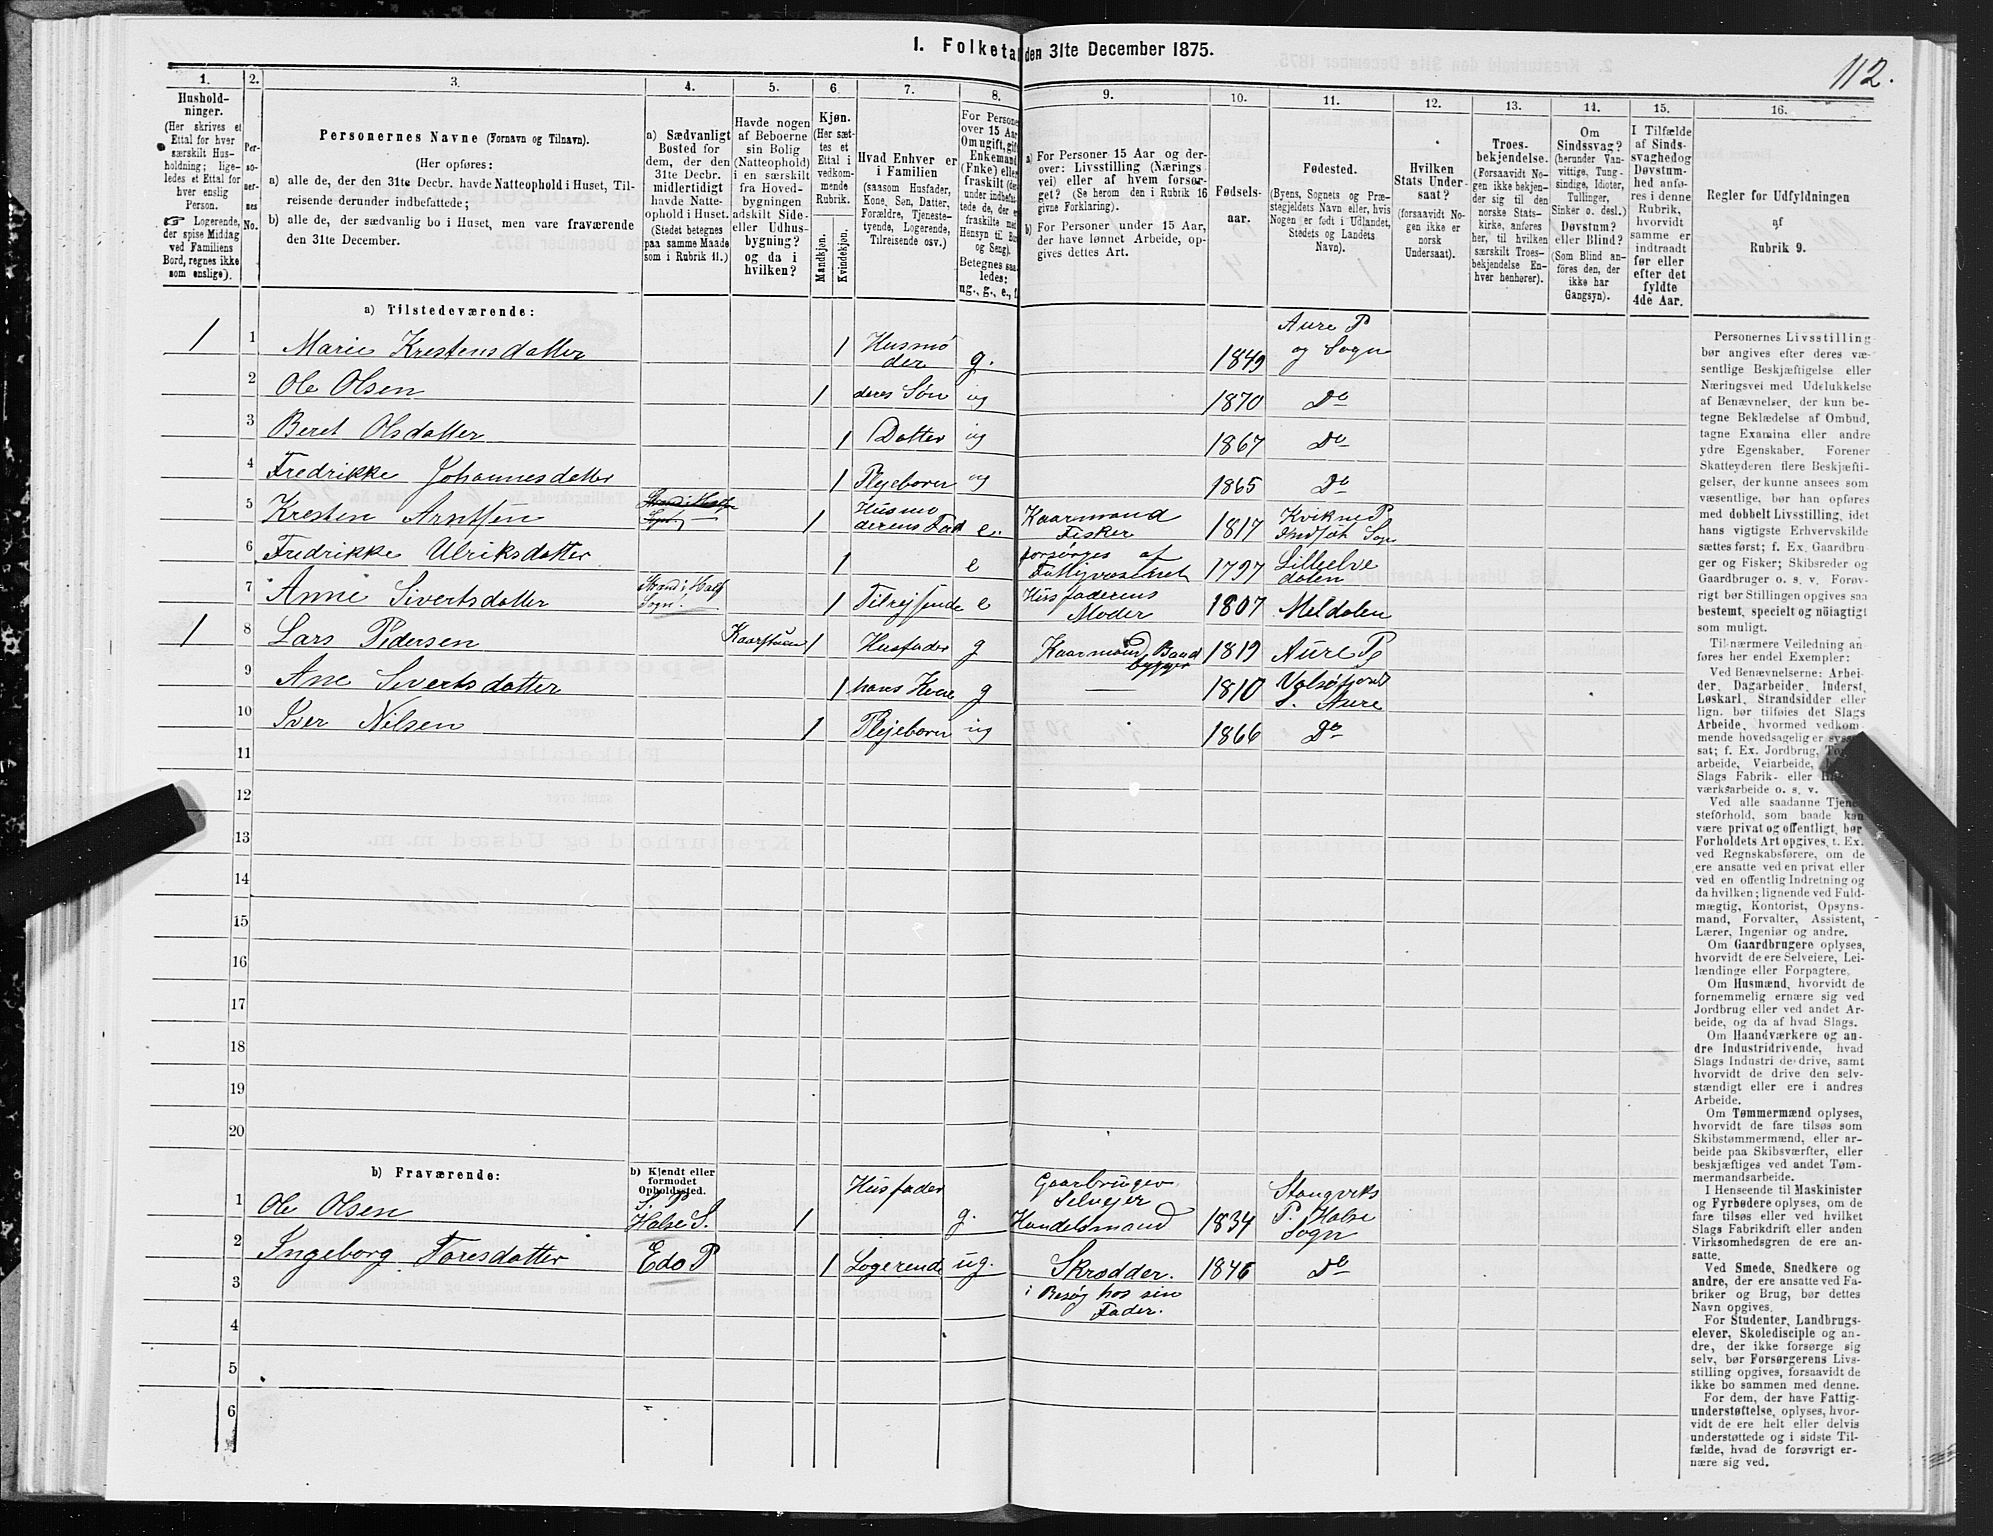 112.
I. Folketal den 31te December 1875.
1. 2. 3. 4. 5. 6. 7. 8. 9. 10. 11. 12. 13. 14. 15. 16.
Hushold-
ninger.
(Her skrives et
Ettal for hver
særskilt Hus-
holdning; lige-
ledes et Ettal for
hver enslig
Person.
☞ Logerende,
der spise Middag
ved Familiens
Bord, regnes ikke
som enslige).
Per-
so-
ner-
nes
No.
Personernes Navne (Fornavn og Tilnavn).
(Her opføres:
a) alle de, der den 31te Decbr. havde Natteophold i Huset, Til-
reisende derunder indbefattede;
b) alle de, der sædvanlig bo i Huset, men vare fraværende
den 31te December.
a) Sædvanligt
Bosted for
dem, der den
31te Decbr.
midlertidigt
havde Natte-
ophold i Huset.
(Stedet betegnes
paa samme Maade
som i Rubrik 11.)
Havde nogen
af Beboerne
sin Bolig
(Natteophold)
i en særskilt
fra Hoved-
bygningen
adskilt Side-
eller Udhus-
bygning?
og da i
hvilken?
Kjøn.
(Her sæt-
tes et
Ettal i
vedkom-
mende
Rubrik.
Mandkjøn.
Kvindekjøn.
Hvad Enhver er
i Familien
(saasom Husfader,
Kone, Søn, Datter,
Forældre, Tjeneste-
tyende, Logerende,
Tilreisende osv.)
For Personer
over 15 Aar:
Om ugift, gift,
Enkemand
(Enke) eller
fraskilt
Betegnes saa-
ledes:
ug., g., e., f.
a) For Personer 15 Aar og der-
over: Livsstilling (Nærings-
vei) eller af hvem forsør-
get? (Se herom den i Rubrik 16
givne Forklaring).
b) For Personer under 15 Aar,
der have lønnet Arbeide, op-
gives dettes Art.
Fødsels-
aar.
Fødested.
(Byens, Sognets og Præ-
stegjeldets Navn eller, hvis
Nogen er født i Udlandet,
Stedets og Landets
Navn).
Hvilken
Stats Under-
saat?
(forsaavidt No-
gen ikke er
norsk
Undersaat).
Troes-
bekjendelse.
(Forsaavidt No-
gen ikke bekjen-
der sig til den
norske Stats-
kirke, anføres
her, til hvilken
særskilt Troes-
bekjendelse En-
hver henhører).
Om
Sindssvag?
(herunder Van-
vittige, Tung-
sindige, Idioter,
Tullinger,
Sinker o. desl.)
Døvstum?
eller Blind?
(Som Blind an-
føres den, der
ikke har
Gangsyn).
I Tilfælde
af Sinds-
svaghed og
Døvstum-
hed anfø-
res i denne
Rubrik,
hvorvidt
samme er
indtraadt
før eller
efter det
fyldte
4de Aar.
Regler for Udfyldningen
af
Rubrik 9.
a) Tilstedeværende:
1 1 Marie Krestensdatter 1 Husmo der g. 1849 Aure P og Sogn
2 Ole Olsen 1 deres Søn ug 1870 Do
3 Beret Olsdatter 1 Datter ug 1867 Do
4 Fredrikke Johannesdatter 1 Plejebarn ug 1865 Do
5 Kresten Arntsen 1 Husmo derens Fad e. Kaarmand Fisker 1817 Kvikne P.
6 Fredrikke Ulriksdatter 1 e forsørges af Fattigvæsenet 1797 Lilleelve dalen
7 Anne Sivertsdatter Strand i Hals Sogn. 1 Tilrejsende e Husfaderens Moder 1807 Meldalen
1 8 Lars Pedersen Kaarstuen 1 Husfader g Kaarmand Baad bygger 1819 Aure P
9 Ane Sivertsdatter 1 hans Kone g — 1810 Valsøfjord S. Aure
10 Iver Nilsen 1 Plejebarn ug 1866 Do
11
12
13
14
15
16
17
18
19
20
b) Fraværende:
b) Kjendt eller
formodet
Opholdssted.
1 Ole Olsen Halse S. 1 Husfader g. Gaarbruger Selvejer Handelsmand 1834 Stangviks P. Halse Sogn
2 Ingeborg Toresdatter Edø P 1 Logerende ug. Skrædder. 1846 Do
3 i Besøg hos sin Fader.
4
5
6
Personernes Livsstilling
bør angives efter deres væ-
sentlige Beskjæftigelse eller
Næringsvei med Udelukkelse
af Benævnelser, der kun be-
tegne Beklædelse af Ombud,
tagne Examina eller andre
ydre Egenskaber. Forener
Skatteyderen flere Beskjæfti-
gelser, der kunne ansees som
væsentlige, bør han opføres
med dobbelt Livsstilling, idet
hans vigtigste Erhvervskilde
sættes først; f. Ex. Gaardbru-
ger og Fisker; Skibsreder og
Gaardbruger o. s. v. Forøv-
rigt bør Stillingen opgives saa
bestemt, specielt og nöiagtigt
som muligt.
Til nærmere Veiledning an-
føres her endel Exempler:
Ved Benævnelserne: Arbei-
der, Dagarbeider, Inderst,
Løskarl, Strandsidder eller
lign. bør tilføies det Slags
Arbeide, hvormed vedkom-
mende hovedsagelig er syssel-
sat; f. Ex. Jordbrug,
arbeide, Veiarbeide,
Slags Fabrik- eller
værksarbeide o. s. v.
Ved alle saadanne Tjene-
steforhold, som baade kan
være privat og offentligt, bør
Forholdets Art opgives, t. Ex.
ved Regnskabsførere, om de
ere ansatte ved en privat eller
ved en offentlig Indretning og
da hvilken; lignende ved Fuld-
mægtig, Kontorist, Opsyns-
mand, Forvalter, Assistent,
Lærer, Ingeniør og andre.
Om Gaardbrugere oplyses,
hvorvidt de ere Selveiere, Lei-
lændinge eller Forpagtere.
Om Husmænd, hvorvidt de
fornemmelig ernære sig ved
Jordbrug eller ved andet Ar-
beide, og da af hvad Slags.
Om Haandværkere og an-
dre Industridrivende, hvad
Slags Industri de drive, samt
hvorvidt de drive den selv-
stændigt eller ere i andres
Arbeide.
Om Tømmermænd oplyses,
hvorvidt de fare tilsøs som
Skibstømmermænd, eller ar-
beide paa Skibsværfter, eller
beskjæftiges ved andet Tøm-
mermandsarbeide.
I Henseende til Maskinister
og Fyrbødere oplyses, om de
fare tilsøs eller ved hvilket
Slags Fabrikdrift eller anden
Virksomhedsgren de ere an-
satte.
Ved Smede, Snedkere og
andre, der ere ansatte ved Fa-
briker og Brug, bør dettes
Navn opgives.
For Studenter, Landbrugs-
elever, Skoledisciple og an-
dre, der ikke forsørge sig
selv, bør Forsørgerens Livs-
stilling opgives, forsaavidt de
ikke bo sammen med denne.
For dem, der have Fattig-
understøttelse, oplyses, hvor-
vidt de ere helt eller delvis
understøttede og i sidste Til-
fælde, hvad de forøvrigt er-
nære sig ved.